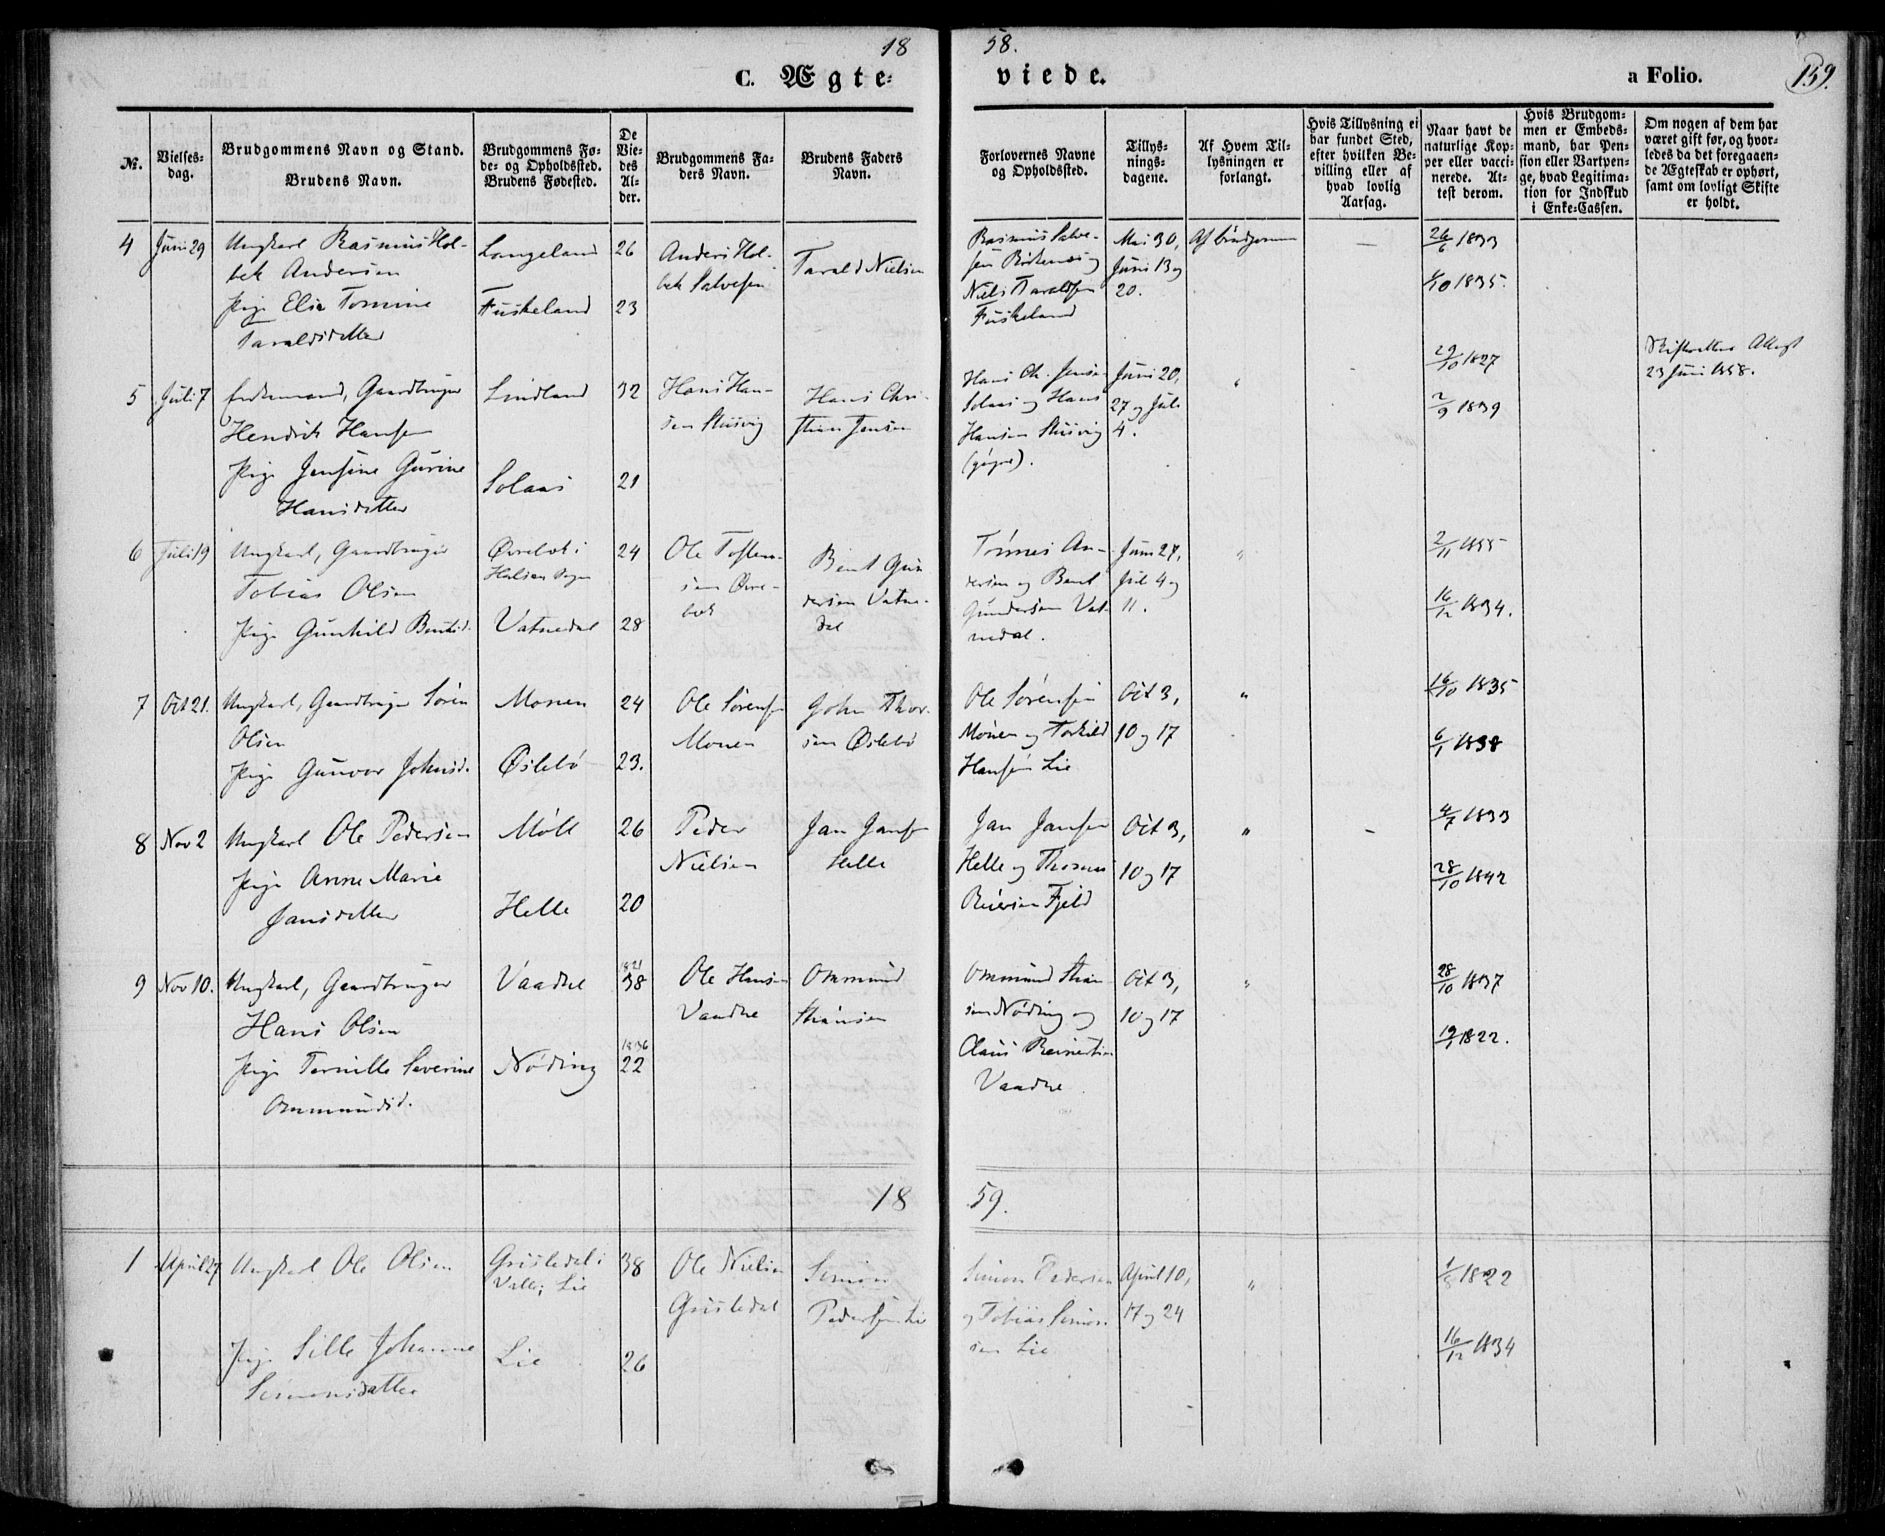 18 58.
C. Ægte- viede. a Folio. 159.
No.
Vielses-
dag.
Brudgommens Navn og Stand.
Brudens Navn.
Brudgommens Fø-
de- og Opholdssted.
Brudens Fødested.
De
Vie-
des
Al-
der.
Brudgommens Fa-
ders Navn.
Brudens Faders
Navn.
Forlovernes Navne
og Opholdssted.
Tillys-
nings-
dagene.
Af Hvem Til-
lysningen er
forlangt.
Hvis Tillysning ei
har fundet Sted,
efter hvilken Be-
villing eller af
hvad lovlig
Aarsag.
Naar havt de
naturlige Kop-
per eller vacci-
nerede. At-
test derom.
Hvis Brudgom-
men er Embeds-
mand, har Pen-
sion eller Vartpen-
ge, hvad Legitima-
tion for Indskud
i Enke-Cassen.
Om nogen af dem har
været gift før, og hvor-
ledes da det foregaaen-
de Ægteskab er ophørt,
samt om lovligt Skifte
er holdt.
4 Juni 29
Ungkarl Rasmus Hol-
bek Andersen
Pige Elise Tomine
Taraldsdatter
Langeland
Fuskeland
26
23
Anders Hol-
bek Salvesen
Tarald Nielsen
Rasmus Salve-
sen og
Niels Taraldsen
Fuskeland
Mai 30,
Juni 13 og
20.
Af brudgommen
—
26/6 1833
/10 1835.
5 Juli 7
Enkemand, Gaardbruger
Hendrik Hansen
Pige Jensine Gurine
Hansdatter
Lindland
Solaas
32
21
Hans Han-
sen Stusvig
Hans Chri-
stian Jensen
Hans Ch. Jensen
Solaas og Hans
Hansen Stusvig
Juni 20,
27 og Juli
4.
"
29/10 1827
2/9 1839
Skifterettens Attest
23 Juni 1858.
6 Juli 19
Ungkarl, Gaardbruger
Tobias Olsen
Pige Gunhild Bentsd.
Øvrebø i
Halsaa Sogn
Vatnedal
24
28
Ole Tostens-
sen Øvre-
bø
Bent Gun
dersen Vatne-
dal
Tønnes An-
dersen og Bent
Gundersen Vat
nedal.
Juni 27,
Juli 4 og
11.
"
2/11 1855
16/12 1834.
7 Oct 21.
Ungkarl, Gaardbruger Søren
Olsen
Pige Gunvor Johnsd.
Monen
Øslebø
24
23.
Ole Sørensen
Monen
John Thor-
sen Øslebø
Ole Sørensen
Monen og Torkild
Hansen Lie
Oct 3,
10 og 17
"
16/10 1835
6/1 1838
8 Nov 2
Ungkarl Ole Pedersen
Pige Anne Marie
Jansdatter
Møll
Helle
26
20
Peder
Nielsen
Jan Jansen
Helle
Jan Jansen
Helle og Thomas
Reiersen Fjeld
Oct 3,
10 og 17
"
—
4/7 1833
28/10 1842
9 Nov 10.
Ungkarl, Gaardbruger
Hans Olsen
Pige Tarnille Severine
Ommundsd.
Vaadne
Nøding
1821
38
1836
22
Ole Hansen
Vaadne
Ommund
Ommund
sen Nøding og
Claus Reinertsen
Vaadne
Oct 3,
10 og 17
"
28/10 1837
19/1 1822.
18 59.
1 April 27
Ungkarl Ole Olsen
Pige Sille Johanne
Simonsdatter
Grusledal i
Valle; Lie
Lie
38
26
Ole Nielsen
Grusledal
Simon
Pedersen Lie
Simon Pedersen
og Tobias Simon
sen Lie
April 10,
17 og 24
"
1/8 1822
16/12 1834